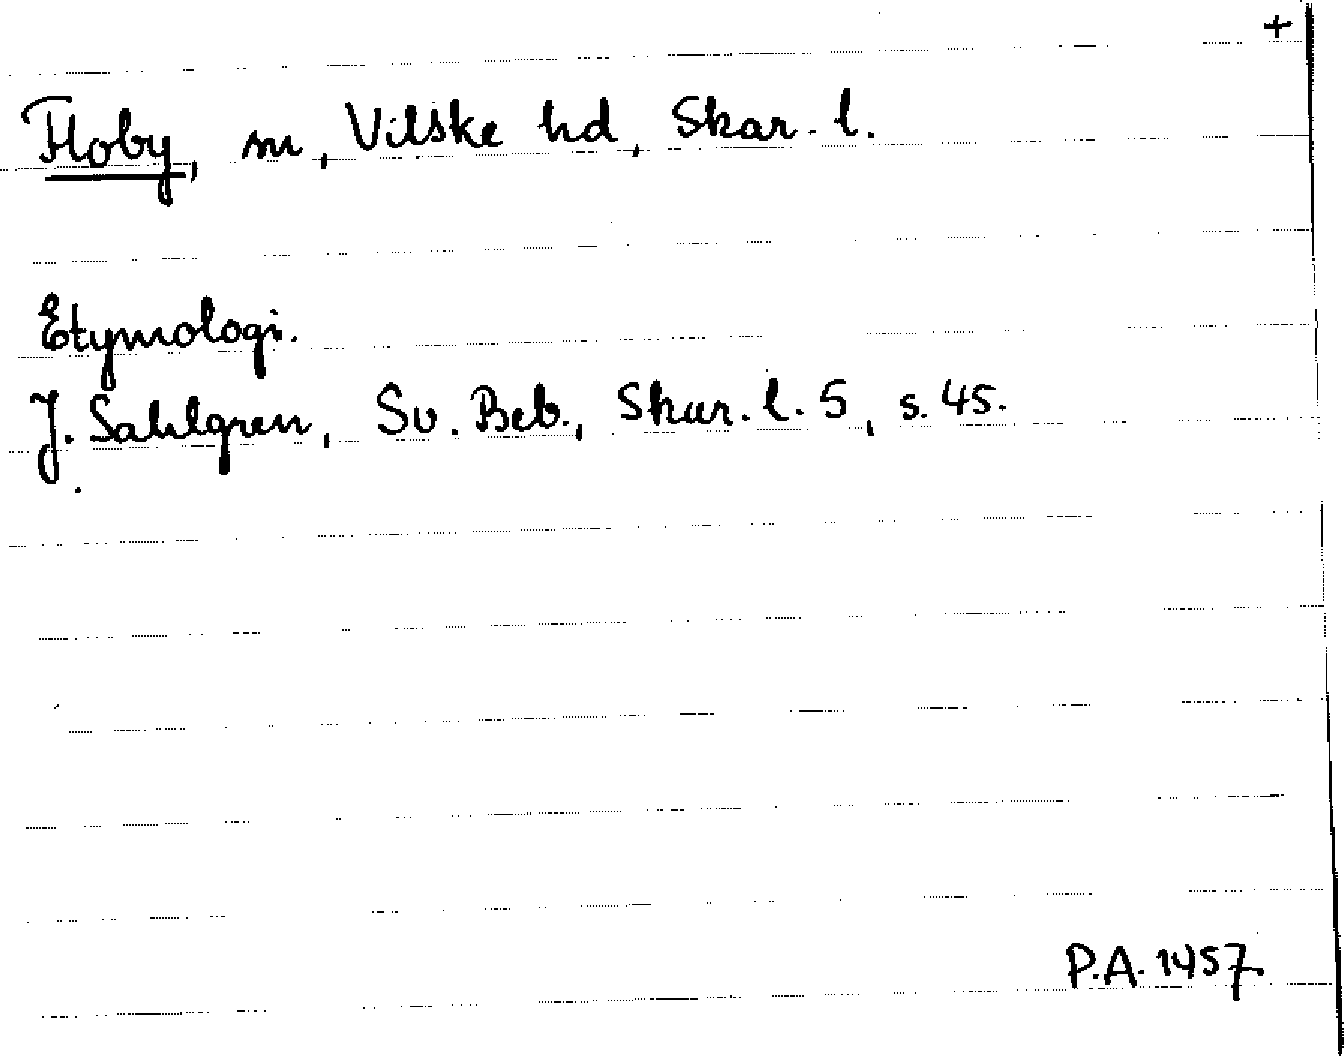 +
Floby, sn, Vilske hd, Skar. l.
Etymologi.
J. Sahlgren, Sv. Beb., Skar. l. 5, s. 45.
P.A. 1457